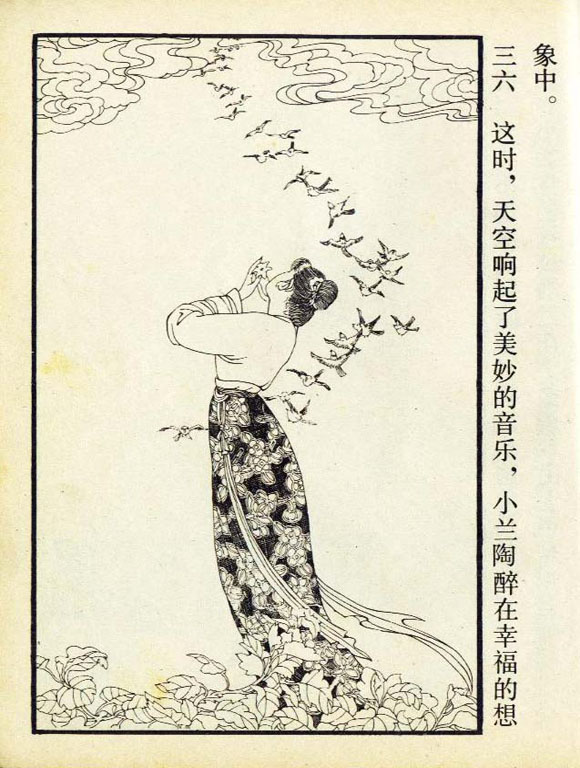 三六　这时，天空响起了美妙的音乐，小兰陶醉在幸福的想
象中。